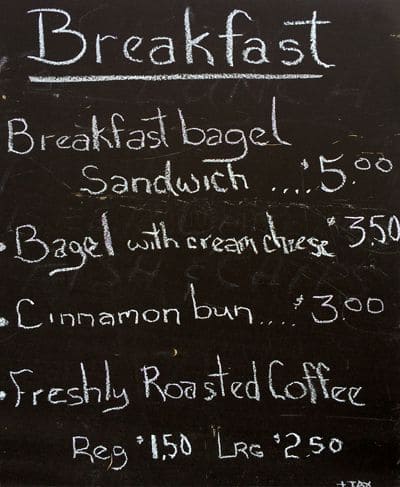 Breakfast
Breakfast bagel
Sandwich ....$5.00
• Bagel with cream cheese $3.50
• Cinnamon bun....$3.00
• Freshly Roasted Coffee
Reg $1.50 LRG $2.50
+ TAX